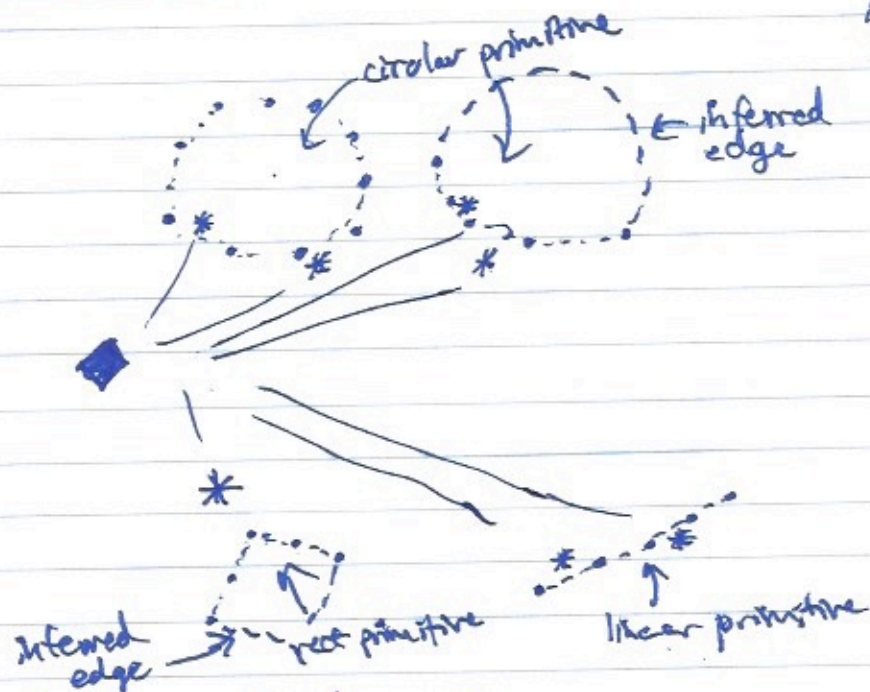 circular primitive
inferred
edge
inferred
edge
rect primitive
linear primitive